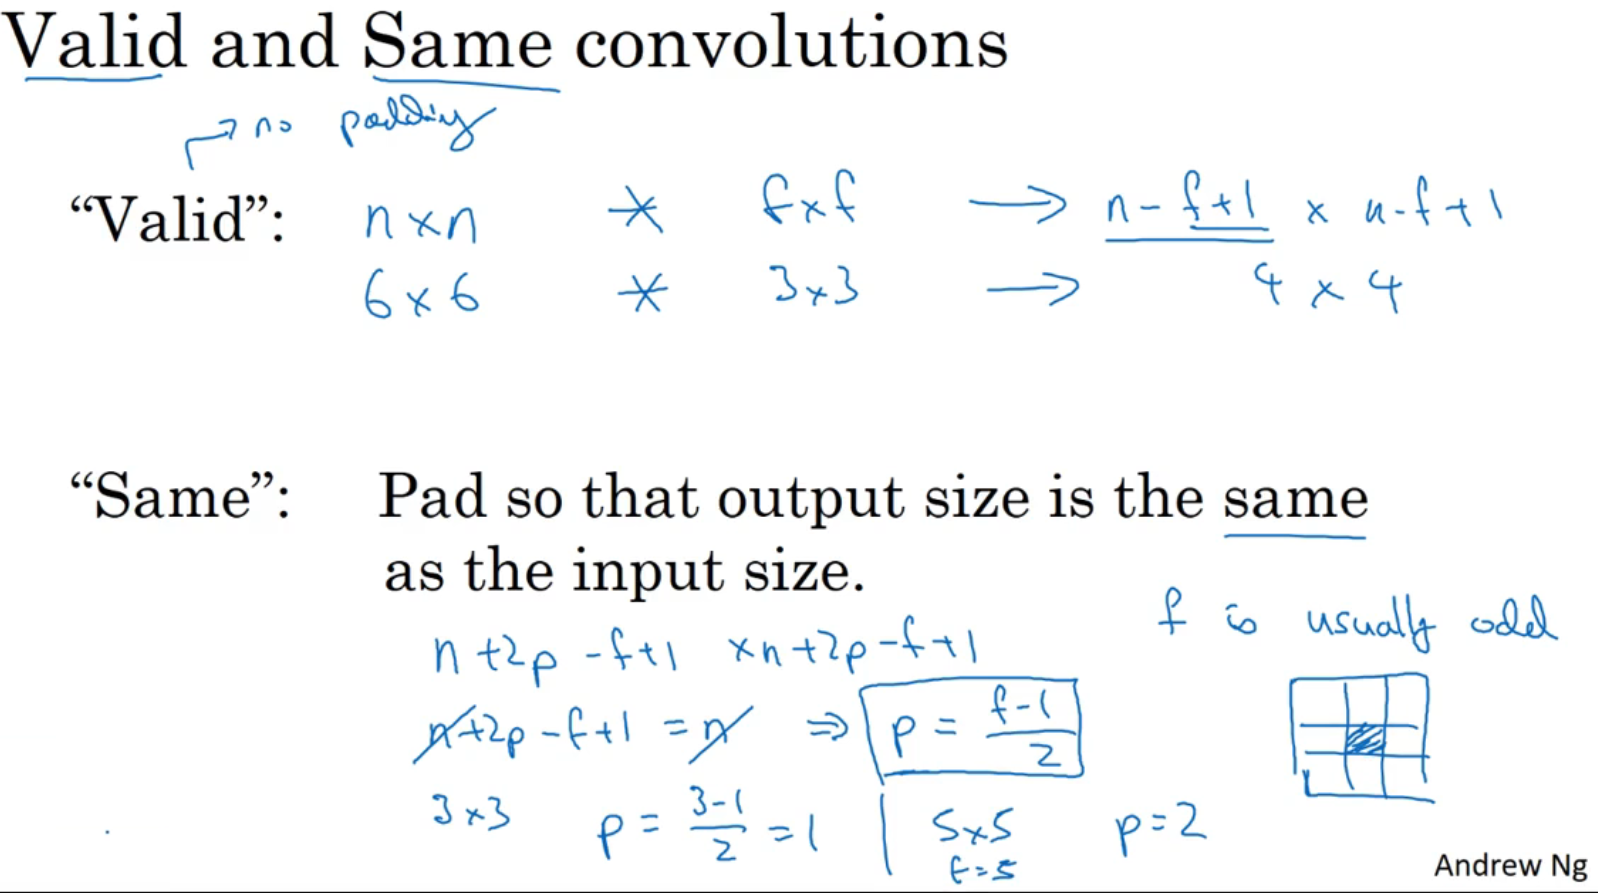 Valid and Same convolutions
→ no padding
“Valid”: n × n * f × f → n - f + 1 × n - f + 1
6 × 6 * 3 × 3 → 4 × 4
“Same”: Pad so that output size is the same
as the input size.
f is usually odd
n + 2p - f + 1 × n + 2p - f + 1
n + 2p - f + 1 = n ⇒ p = \frac{f-1}{2}
3 × 3 p = \frac{3-1}{2} = 1 | 5 × 5 p = 2
f = 5
Andrew Ng